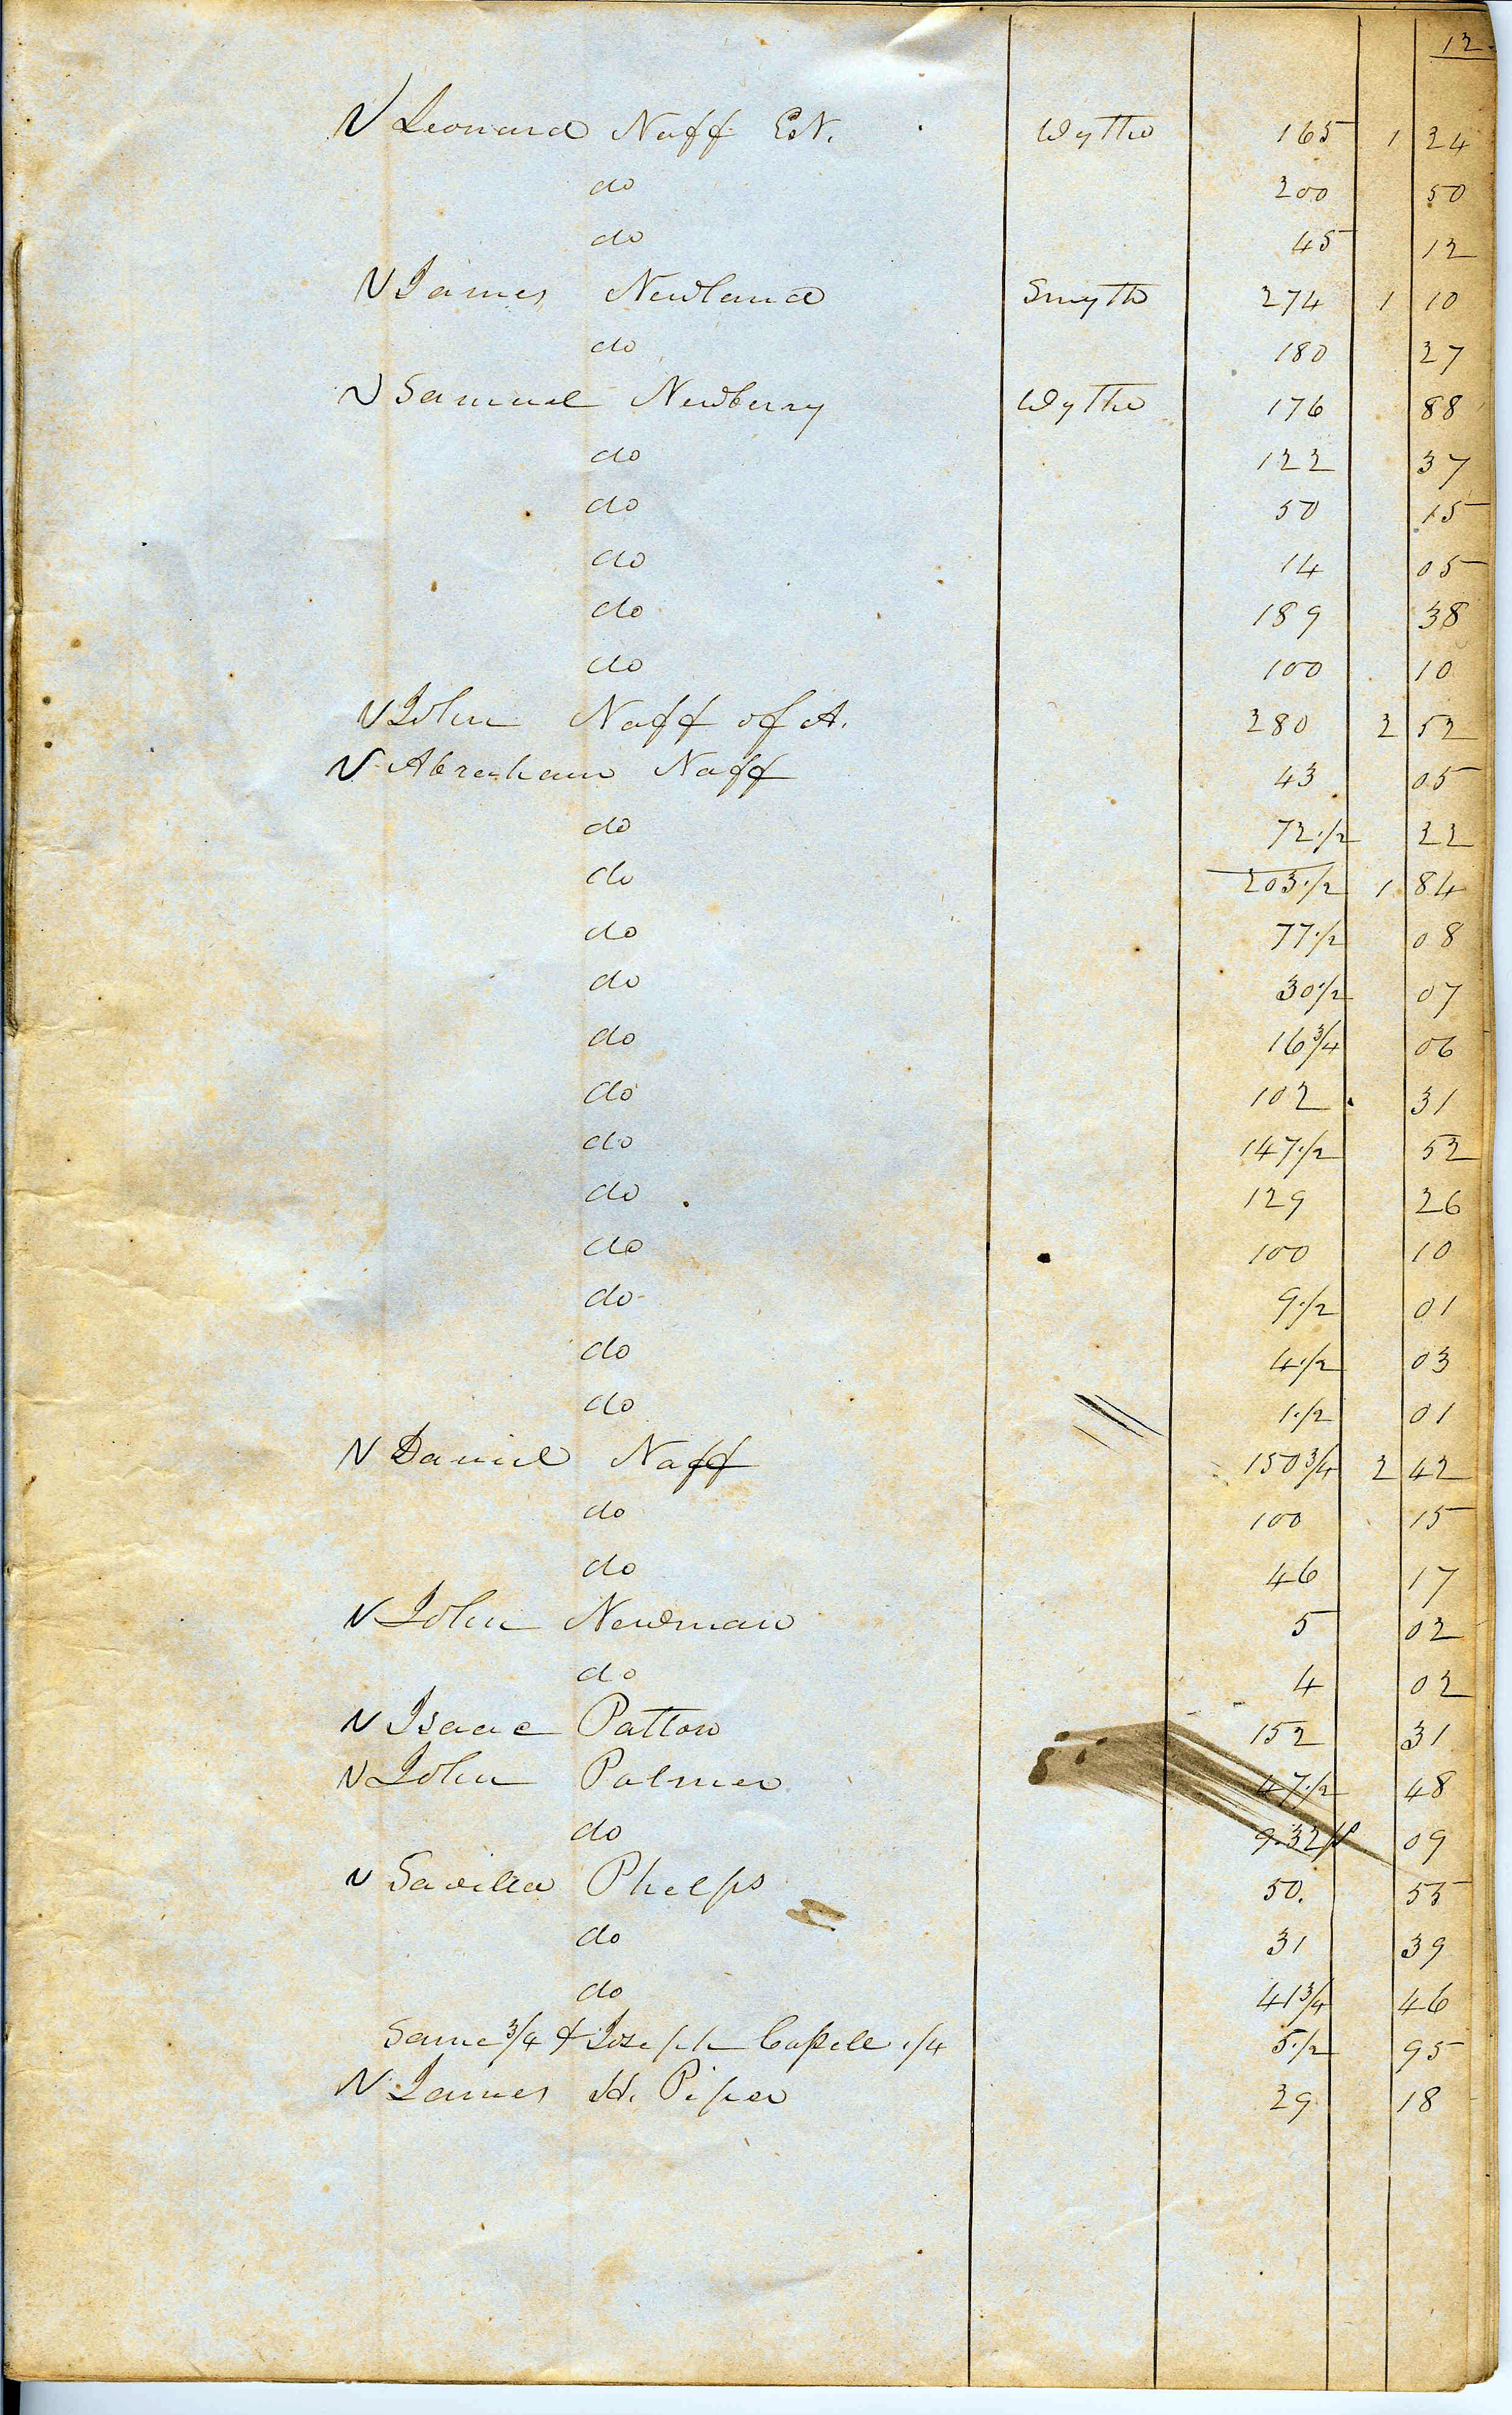 12
Leonard Naff Est. Wythe 165 1 24
do 200 50
do 45 12
James Newland Smyth 274 1 10
do 180 27
Samuel Newberry Wythe 176 88
do 122 37
do 50 15
do 14 05
do 189 38
do 100 10
John Naff of A. 280 2 52
Abraham Naff 43 05
do 72 1/2 22
do 203 1/2 1 84
do 77 1/2 08
do 30 1/2 07
do 16 3/4 06
do 102 31
do 147 1/2 52
do 129 26
do 100 10
do 9 1/2 01
do 4 1/2 03
do 1 1/2 01
Daniel Naff 150 3/4 2 42
do 100 15
do 46 17
John Newman 5 02
do 4 02
Isaac Patton 152 31
John Palmer 47 1/2 48
do 9.32 p 09
Savilla Phelps 50. 55
do 31 39
do 41 3/4 46
Same 3/4 & Joseph Capell 1/4 5 1/2 95
James H. Piper 29 18